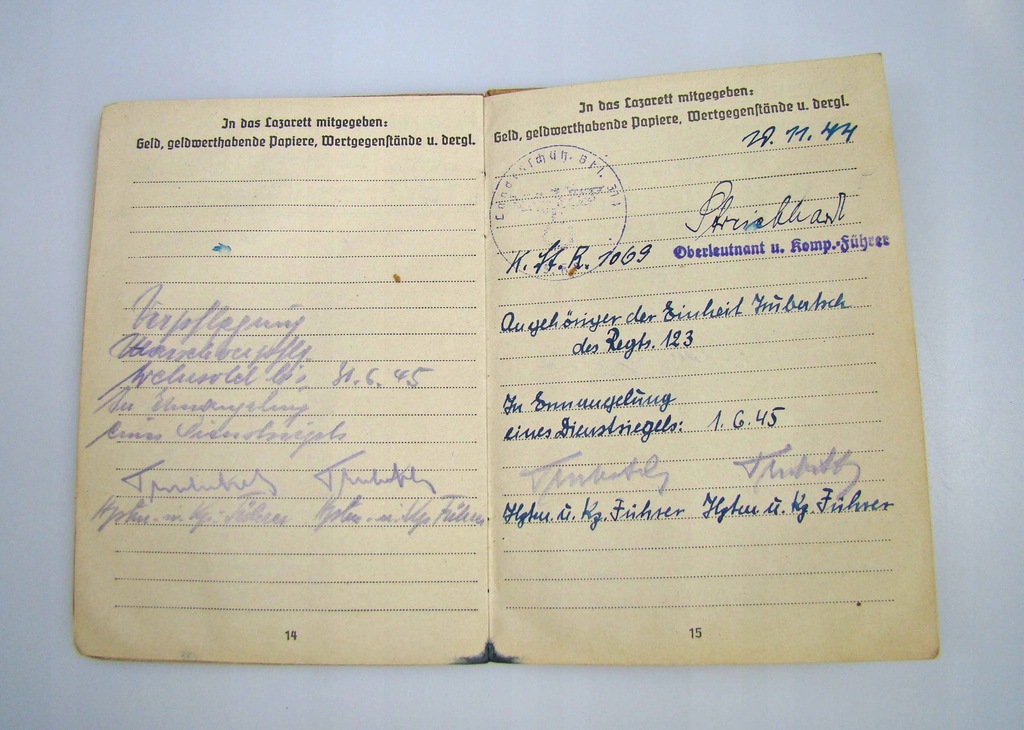 In das Lazarett mitgegeben:
Geld, geldwerthabende Papiere, Wertgegenstände u. dergl.
Verpflegung
Marschverpflg.
Wehrsold bis 31.6.45
In Ermangelung
eines Dienstsiegels
Hptm. u. Kp. Führer Hptm. u. Kp. Führer
14
In das Lazarett mitgegeben:
Geld, geldwerthabende Papiere, Wertgegenstände u. dergl.
11.44
Landesschütz. Btl.
K. St. R. 1069
Oberleutnant u. Komp.-Führer
Angehöriger der Einheit Trubetsch
des Regts. 123
In Ermangelung
eines Dienstsiegels: 1.6.45
Hptm u. Kp. Führer Hptm u. Kp. Führer
15